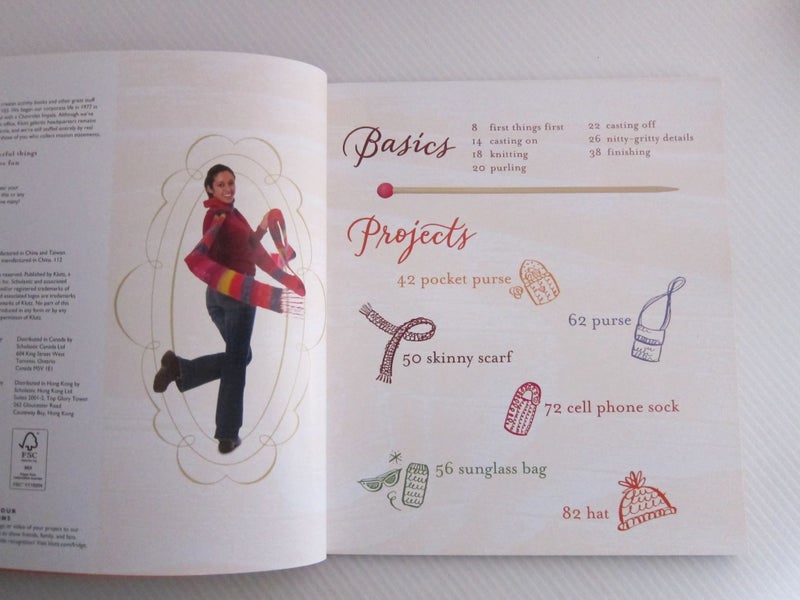 create activity books and other great stuff
We began our corporate life in 1977 in
with a Chevrolet Impala. Although we've
office, Klutz galactic headquarters remains
and we're still staffed entirely by real
those of you who collect mission statements,
things
fun
your
this or any
many!
manufactured in China and Taiwan.
manufactured in China. 112
reserved. Published by Klutz,
Inc. Scholastic and associated
and/or registered trademarks of
associated logos are trademarks
of Klutz. No part of this
produced in any form or by any
permission of Klutz.
Distributed in Canada by
Scholastic Canada Ltd
604 King Street West
Toronto, Ontario
Canada M5V 1E1
Distributed in Hong Kong by
Scholastic Hong Kong Ltd
Suites 2001-2, Top Glory Tower
262 Gloucester Road
Causeway Bay, Hong Kong
FSC
MIX
YOUR
or video of your project to our
to show friends, family, and fans
Visit klutz.com/fridge.
Basics
8 first things first
14 casting on
18 knitting
20 purling
22 casting off
26 nitty-gritty details
38 finishing
Projects
42 pocket purse
62 purse
50 skinny scarf
72 cell phone sock
56 sunglass bag
82 hat